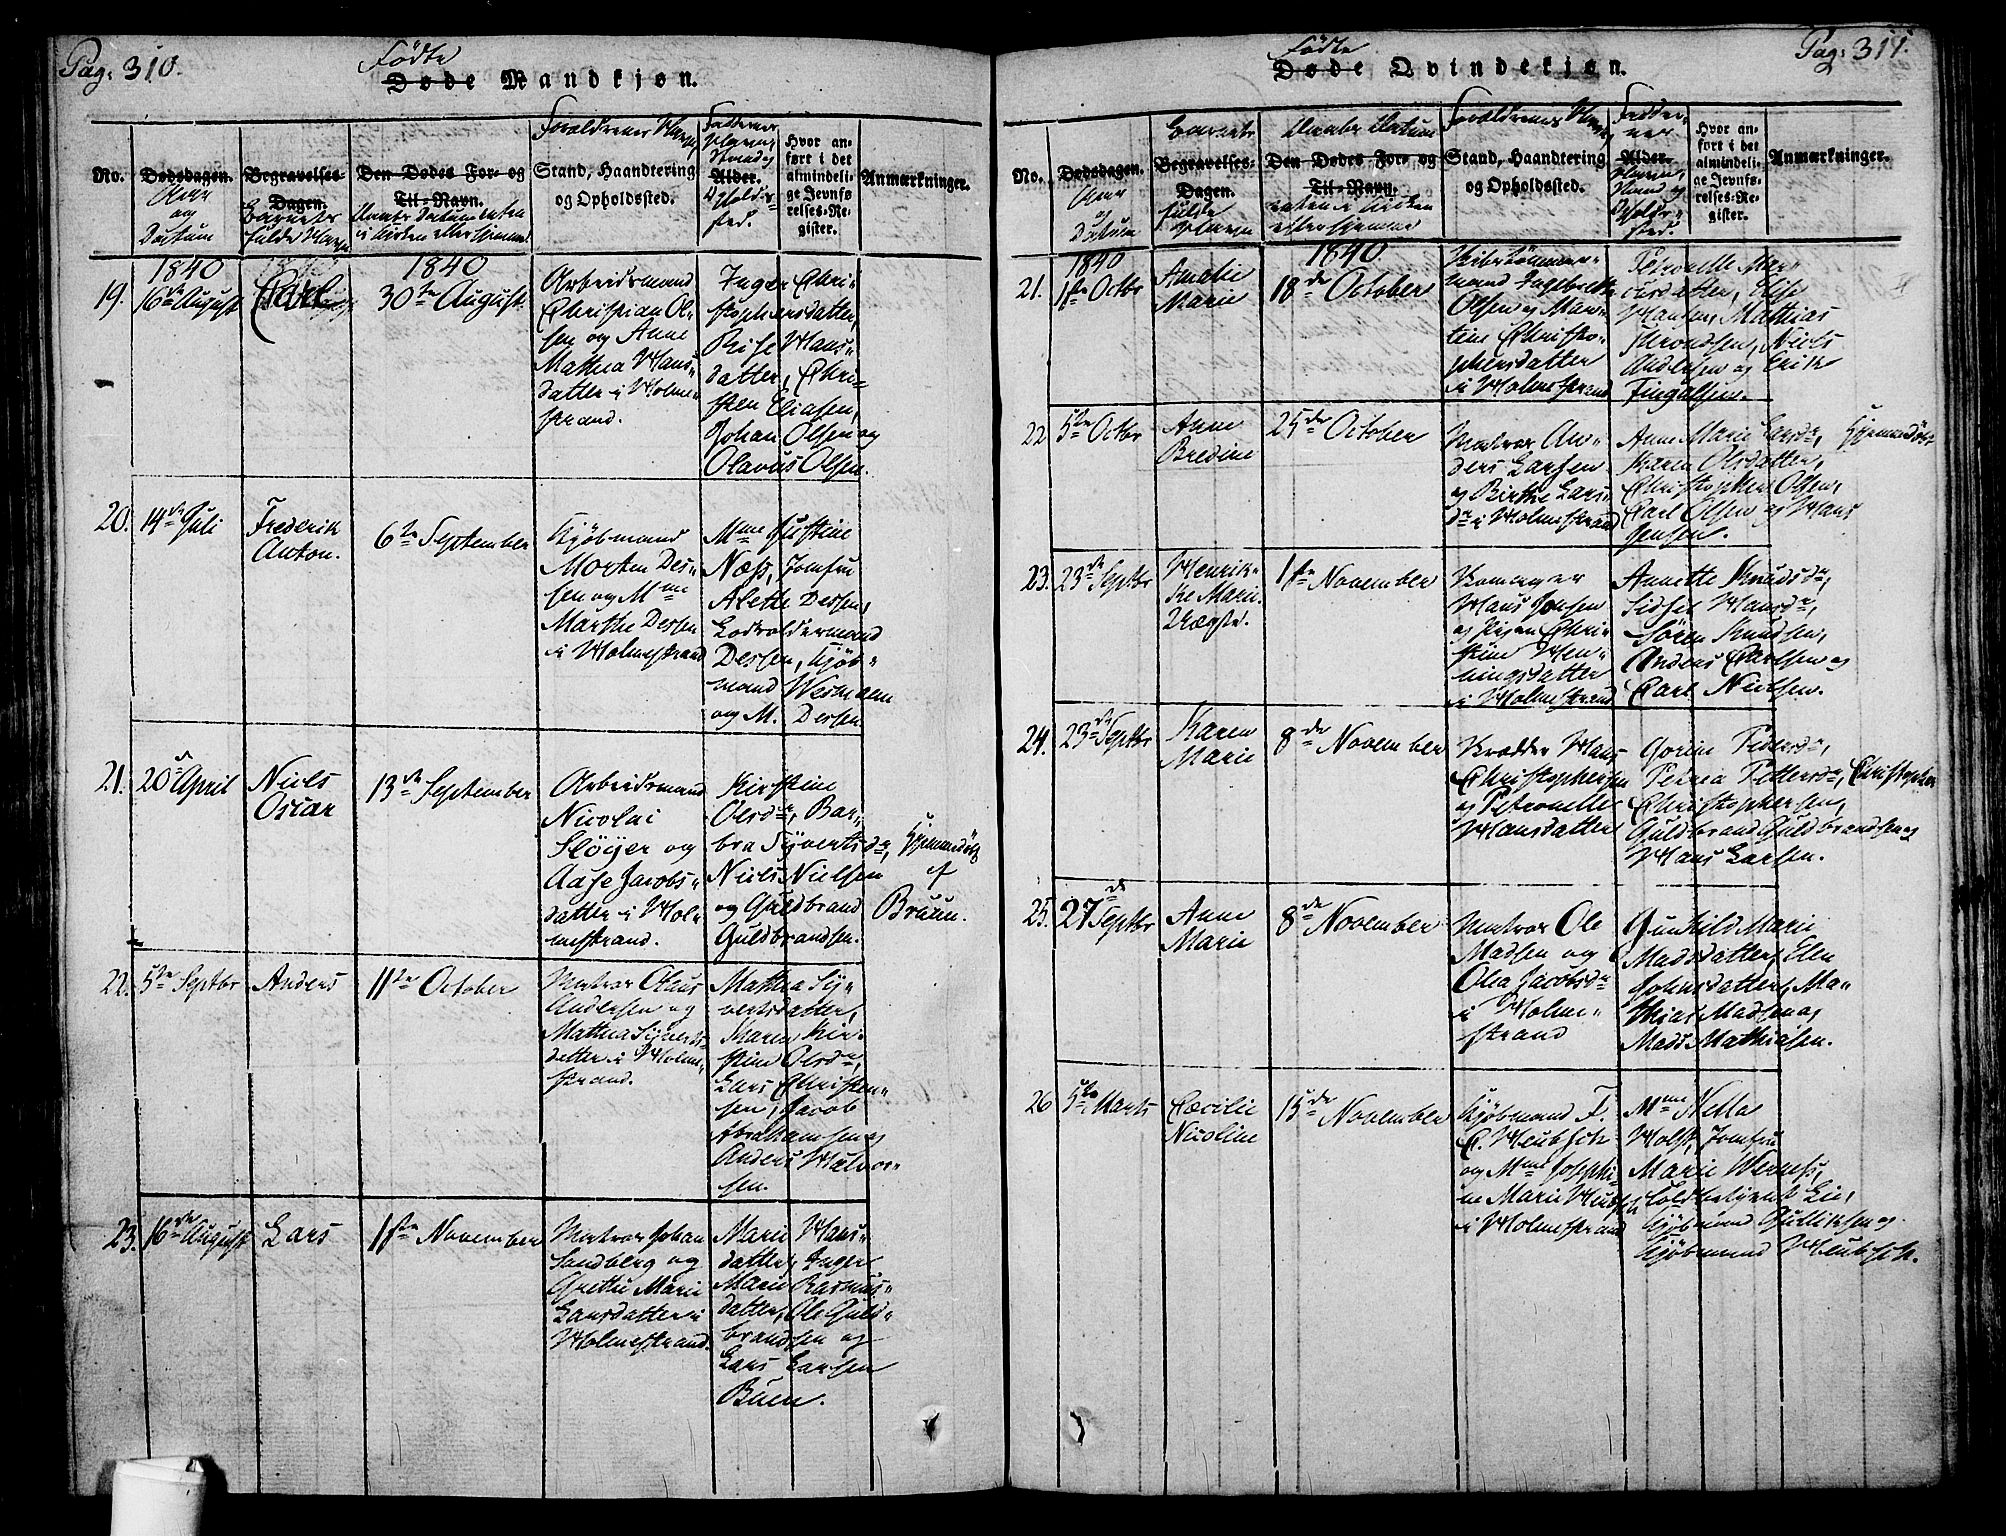 Pag: 310.
Födte
Døde Mandkjøn.
No.
Dødsdagen.
Aar
og
Datum
Begravelses-
Dagen.
Barnets
fulde Navn
Den Dødes For- og
Til-Navn.
Daabs Datum enten
i Kirken eller hjemme
Forældrenes Navn,
Stand, Haandtering
og Opholdssted.
Faddernes
Navn,
Stand og
Alder.
Opholds-
sted.
Hvor an-
ført i det
almindeli-
ge Jevnfø-
relses-Re-
gister.
Anmærkninger.
1840
1840
19.
16de August
Carl
30te August
Arbeidsmand
Christian Ol-
sen og Anne
Mathea Hans-
datter i Holme-
strand.
Inger Chri-
stophersdatter,
Hans-
datter, Chri-
sten Eliasen,
Johan Olsen og
Olavus Olsen.
20.
14de Juli
Frederik
Anton.
6te September
Kjöbmand
Morten Des-
sen og Mme
Marthe Dessen
i Holmestrand
Mme Justine
Næss, Jomfru
Alette Dessen,
Dessen, Kjöb-
mand
og M. Dessen
21.
20de April
Niels
Oscar
13de September
Arbeidsmand
Nicolai
Slöyer og
Aase Jacobs-
datter i Hol-
mestrand.
Kirstine
Olsdr, Bar-
bra Syvertsdr,
Niels Nielsen
og Guldbrand
Guldbrandsen.
Hjemmedöbt
af
Bruun.
22.
5te Septbr
Anders
11te October
Matros Olaus
Andersen og
Mathea Siverts-
datter i Holme-
strand.
Mathea Sy-
vertsdatter,
Maren Kir-
stine Olsdr,
Lars Christen-
sen, Jacob
Abrahamsen og
Anders Halvor-
sen.
23.
16de August
Lars
1ste November
Matros Johan
Sandberg og
Grethe Marie
Larsdatter i
Holmestrand.
Marie Hans-
datter, Inger
Marie Rasmus-
datter, Ole Guld-
brandsen og
Lars Larsen
Buen.
Pag: 311.
Födte
Døde Qvindekjøn.
No.
Dødsdagen.
Aar
og
Datum
Barnets
Begravelses-
Dagen.
fulde
Navn
Daabs Datum
Den Dødes For- og
Til-Navn.
enten i Kirken
eller hjemme
Forældrenes Navn,
Stand, Haandtering
og Opholdssted.
Fadder-
nes
Alder.
Navn,
Stand og
Opholds-
sted.
Hvor an-
ført i det
almindeli-
ge Jevnfø-
relses-Re-
gister.
Anmærkninger.
1840
1840
21.
1ste Octbr
Amalie
Marie
18de October
Skibstömmer-
mand Ingebrekt
Olsen og Mar-
tine Christo-
phersdatter
i Holmestrand
Petronelle Mar-
cusdatter, Else
Hansen, Mathias
Throndsen, Niels
Andersen og Erik
Fingalsen.
22
5te Octbr
Anne
Bredine
25de October
Matros An-
ders Larsen
og Birthe Lars-
dr i Holmestrand
Anne Marie Larsdr,
Karen Olsdatter,
Christopher Olsen,
Carl Olsen og Hans
Jensen.
Hjemmedöbt
23.
23de Septbr
Henrik-
ke Marie
1ste November
Hans Jensen
og Pigen Chri-
stine Hen-
ningsdatter
i Holmestrand
Annette Knudsdr,
Sidsel Hansdr,
Sören Knudsen,
Anders Carlsen og
Carl Nielsen.
24.
23de Septbr
Karen
Marie
8de November
Hans
Christophersen
og Petronelle
Hansdatter
Gorine Pedersdr,
Petrea Pettersdr, Christopher
Christophersen,
Guldbrand Guldbrandsen og
Hans Larsen.
25.
27de Septbr
Anne
Marie
8de November
Matros Ole
Madsen og
Olea Jacobsdr
i Holme-
strand
Gunhild Marie
Madsdatter, Elen
Johnsdatter, Ma-
thias Madsen og
Mads Mathiasen.
26
5te Marts
Cæcilie
Nicoline
15de November
Kjöbmand F.
C. Heubsch
og Mme Josephi-
ne Marie Heubsch
i Holmestrand
Mme Nella
Holst, Jomfru
Marie Werness,
Toldbetjent Lie,
Kjöbmand Gulliksen og
Kjöbmand Heubsch.